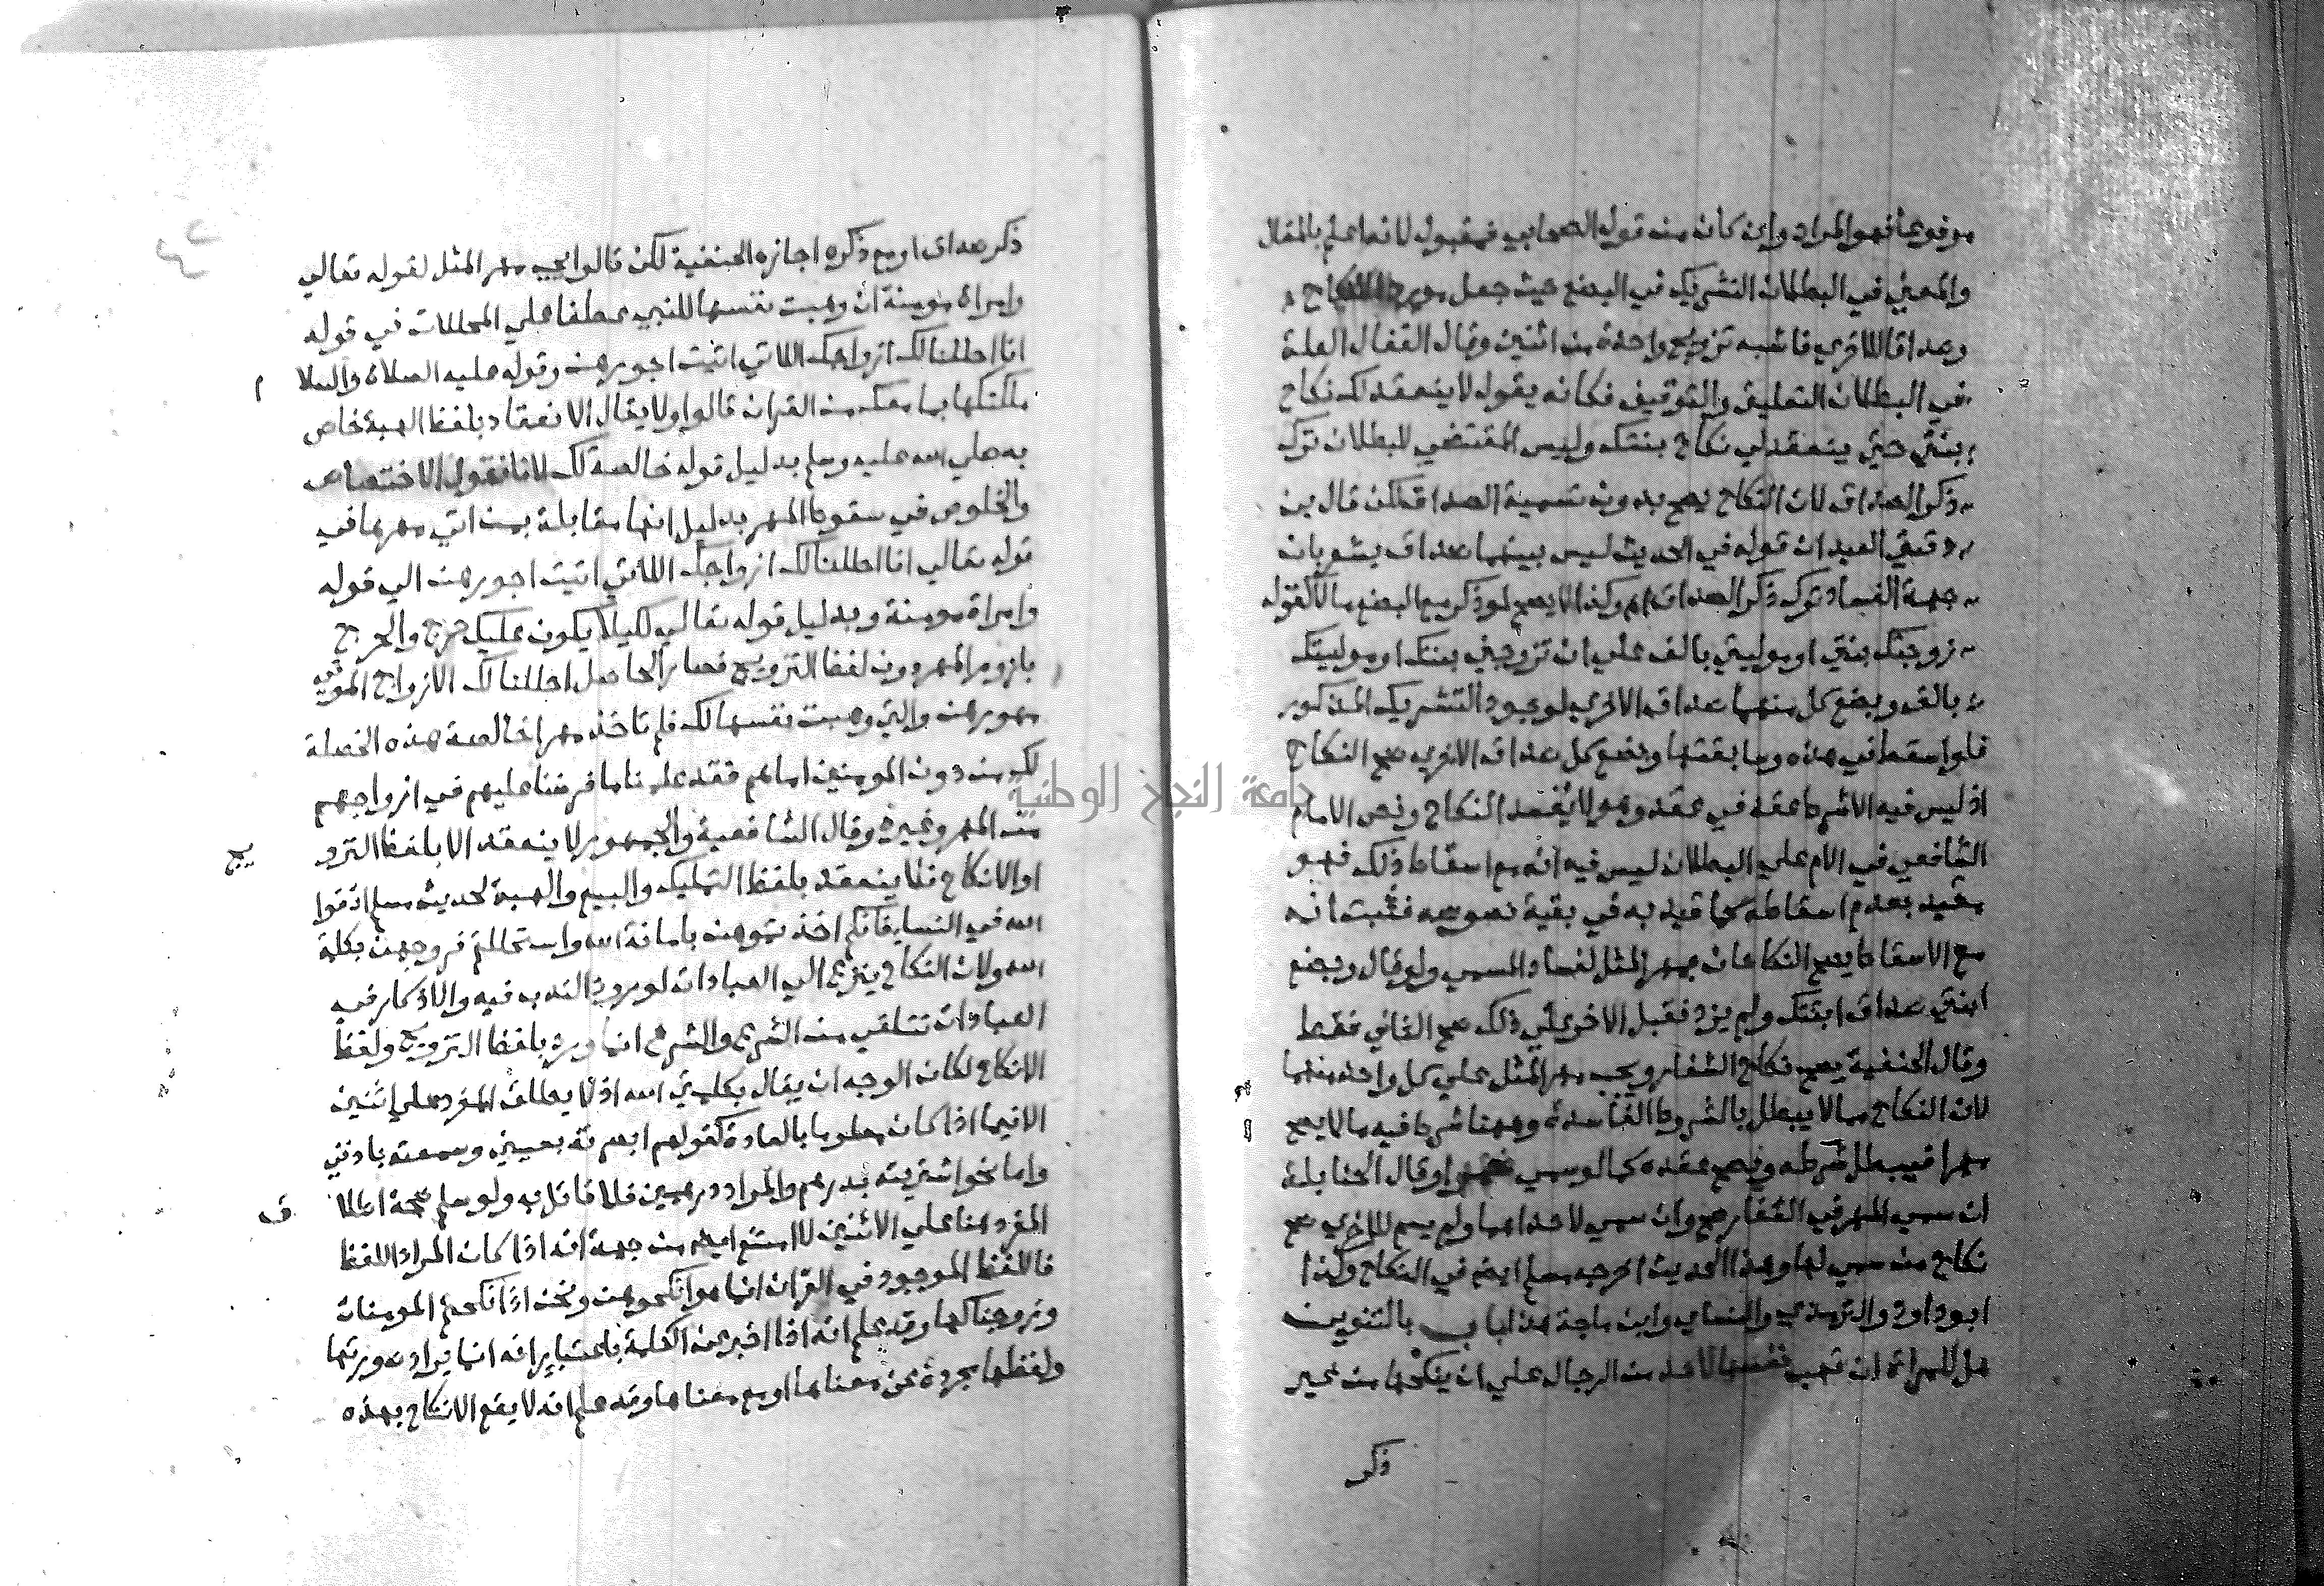 مرفوعا فهو المراد وان كان من قول الصحابي فمقبول لانه اعلم بالمقال
والمعني في البطلان التشريك في البضع حيث جعل مورد النكاح
وصداقا للاخري فاشبه تزويج واحدة من اثنين وقال القفال العلة
في البطلان التعليق والتوقيف فكانه يقول لا ينعقد لك نكاح
بنتي حتي ينعقد لي نكاح بنتك وليس المقتضي للبطلان ترك
ذكر الصداق لان النكاح يصح بدون تسمية الصداق لكن قال بن
دقيق العيد ان قوله في الحديث ليس بينهما صداق يشعر بان
جهة الفساد ترك ذكر الصداق اهـ وكذا لا يصح لو ذكر مع البضع مالا كقوله
زوجتك بنتي او موليتي بالف علي ان تزوجني بنتك او موليتك
بالف وبضع كل منهما صداق الاخري لوجود التشريك المذكور
فلو اسقط في هذه وسابقتها وبضع كل صداق الاخري صح النكاح
اذ ليس فيه الا شرط عقد في عقد وهو لا يفسد النكاح ونص الامام
الشافعي في الام علي البطلان ليس فيه انه مع اسقاط ذلك فهو
مقيد بعدم اسقاطه كما قيد به في بقية نصوصه فثبت انه
مع الاسقاط يصح النكاحان بمهر المثل لفساد المسمي ولو قال وبضع
ابنتي صداق ابنتك ولم يزد فقبل الاخر علي ذلك صح الثاني فقط
وقال الحنفية يصح نكاح الشغار ويجب مهر المثل علي كل واحد منهما
لان النكاح مما لا يبطل بالشروط الفاسدة وههنا شرط فيه ما لا يصح
مهرا فيبطل شرطه ويصح عقده كما لو سمي خمرا وقال الحنابلة
ان سمي المهر في الشغار صح وان سمي لاحداهما ولم يسم للاخري صح
نكاح من سمي لها وهذا الحديث اخرجه مسلم ايضا في النكاح وكذا
ابو داود والترمذي والنساي وابن ماجة هذا باب بالتنوين
هل للمراة ان تهب نفسها لاحد من الرجال علي ان ينكحها من غير
ذكر
ذكر صداق او مع ذكره اجازه الحنفية لكن قالوا يجب مهر المثل لقوله تعالي
وامراة مومنة ان وهبت نفسها للنبي عطفا علي المحللات في قوله
انا احللنا لك ازواجك اللاتي اتيت اجورهن وقوله عليه الصلاة والسلا م
ملكتكها بما معك من القران قالوا ولا يقال الانعقاد بلفظ الهبة خاص
به صلي الله عليه وسلم بدليل قوله خالصة لك لانا نقول الاختصاص
والخلوص في سقوط المهر بدليل انها مقابلة بمن اتي مهرها في
قوله تعالي انا احللنا لك ازواجك اللاتي اتيت اجورهن الي قوله
وامراة مومنة وبدليل قوله تعالي لكيلا يكون عليك حرج والحرج
بلزوم المهر دون لفظ التزويج فصار الحاصل احللنا لك الازواج الموتي
مهورهن والتي وهبت نفسها لك فلم تاخذ مهرا خالصة هذه الخصلة
لك من دون المومنين اما هم فقد علمنا ما فرضنا عليهم في ازواجهم
من المهر وغيره وقال الشافعية والجمهور لا ينعقد الا بلفظ التزو يج
او الانكاح فلا ينعقد بلفظ التمليك والبيع والهبة لحديث مسلم اتقوا
الله في النساء فانكم اخذتموهن بامانة الله واستحللتم فروجهن بكلمة
الله ولان النكاح ينزع الي العبادات لورود الندب فيه والاذكار في
العبادات تتلقي من الشرع والشرع انما ورد بلفظ التزويج ولفظ
الانكاح لكان الوجه ان يقال بكلمتي الله اذ لا يطلق المفرد علي اثنين
الا فيما اذا كان معلوما بالعادة كقولهم ابصرته بعيني وسمعته باذني
واما نحو اشتريته بدرهم والمراد درهمين فلا قائل به ولو سلم صحة اطلا ق
المفرد هنا علي الاثنين لامتنع ايضا من جهة انه اذا كان المراد اللفظ
فاللفظ الموجود في القران انما هو انكحوهن ونحن اذا نكحتم المومنات
وزوجناكها وقد علم انه اذا اخبر عن الكلمة باعتبار انه انما يراد صورتها
ولفظها مجردة عن معناها او مع معناها وقد علم انه لا يقع الانكاح بهذه
جامعة النجاح الوطنية